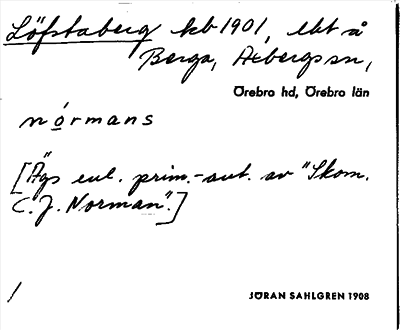 Löfstaberg kb 1901, ekt å
Berga, Axbergs sn,
Örebro hd, Örebro län
nórmans
["Ägs enl. prim.-aut. av "Skom.
C. J. Norman".]
/
JÖRAN SAHLGREN 1908